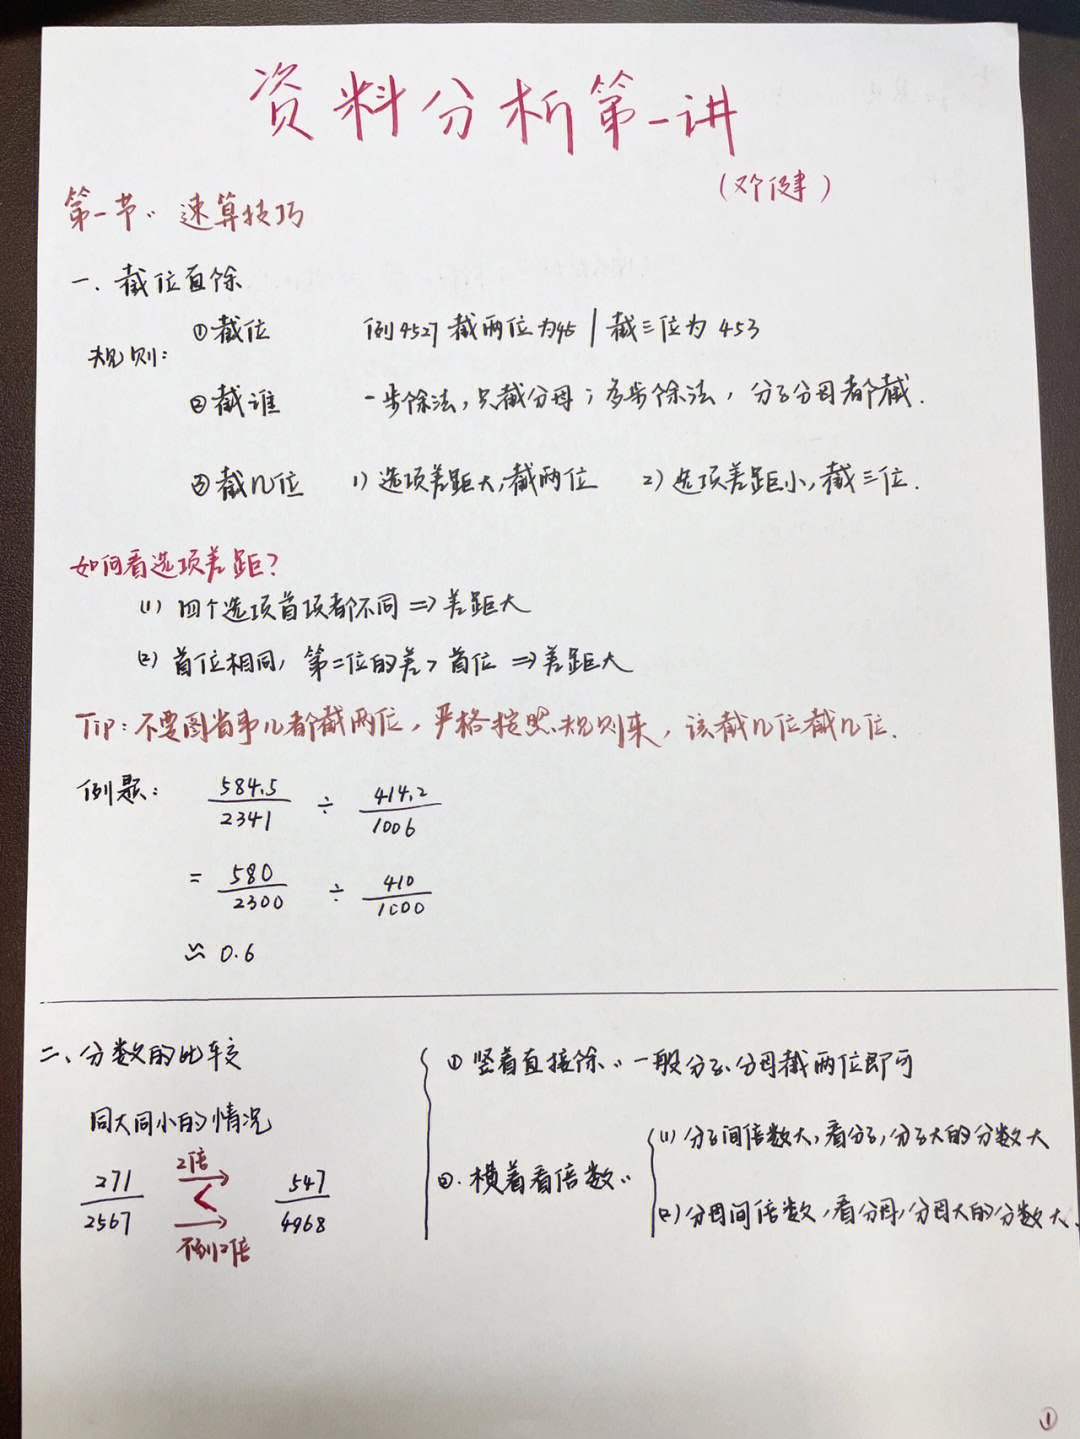 资料分析第一讲
(邓健)
第一节:速算技巧
一、截位直除
规则:
①截位 例4527 截两位为45 | 截三位为 453
②截谁 一步除法,只截分母;多步除法,分子分母都截.
③截几位 1) 选项差距大,截两位 2) 选项差距小,截三位.
如何看选项差距?
(1) 四个选项首项都不同 => 差距大
(2) 首位相同, 第二位的差 > 首位 => 差距大
Tip: 不要图省事儿都截两位, 严格按照规则来, 该截几位截几位.
例题: 584.5/2341 ÷ 414.2/1006
= 580/2300 ÷ 410/1000
≈ 0.6
二、分数的比较
同大同小的情况
271/2567 < 547/4968
2倍
不到2倍
①竖着直接除: 一般分子、分母截两位即可
②.横着看倍数:
(1) 分子间倍数大,看分子,分子大的分数大
(2) 分母间倍数,看分母,分母大的分数大.
①